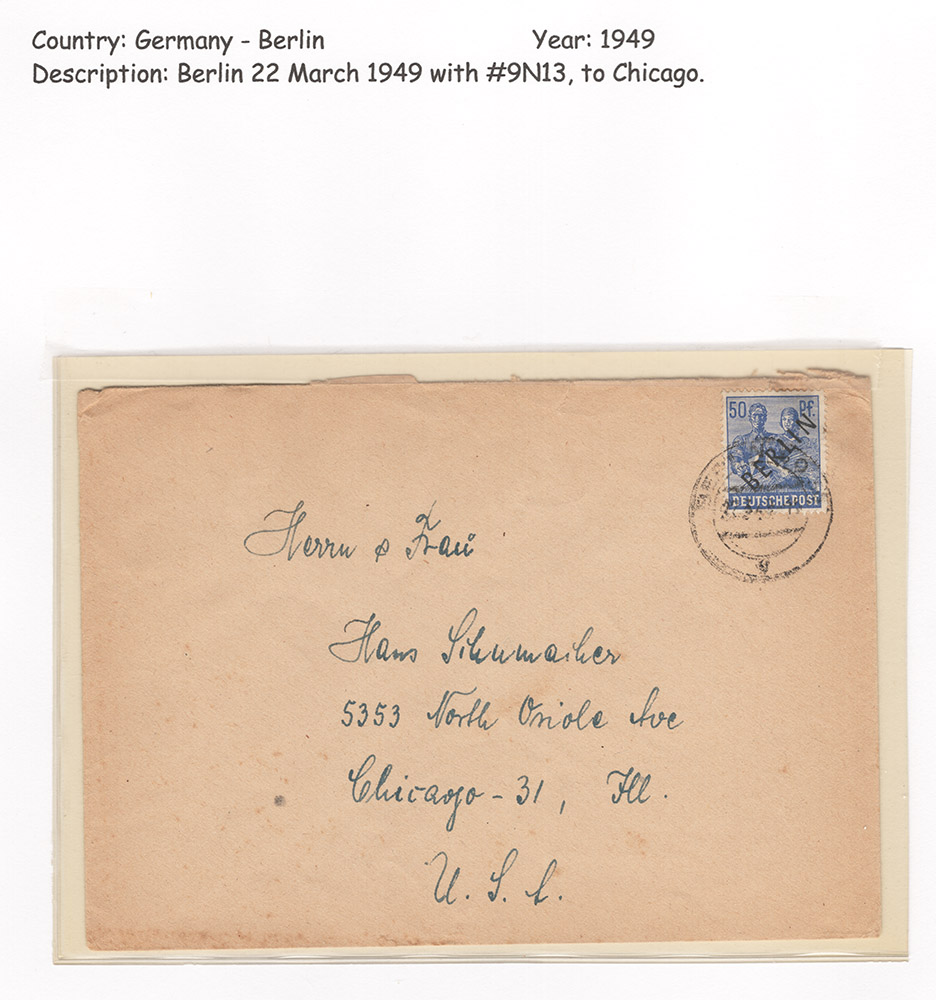 Country: Germany - Berlin Year: 1949
Description: Berlin 22 March 1949 with #9N13, to Chicago.
50 Pf.
BERLIN
DEUTSCHE POST
Herrn & Frau
Hans Schumacher
5353 North Oriole Ave
Chicago - 31, Ill.
U. S. A.